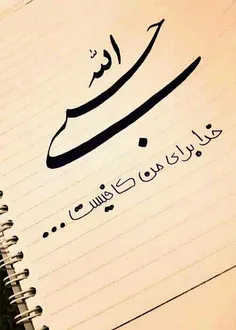 حسبی الله
خدا برای من کافیست ...